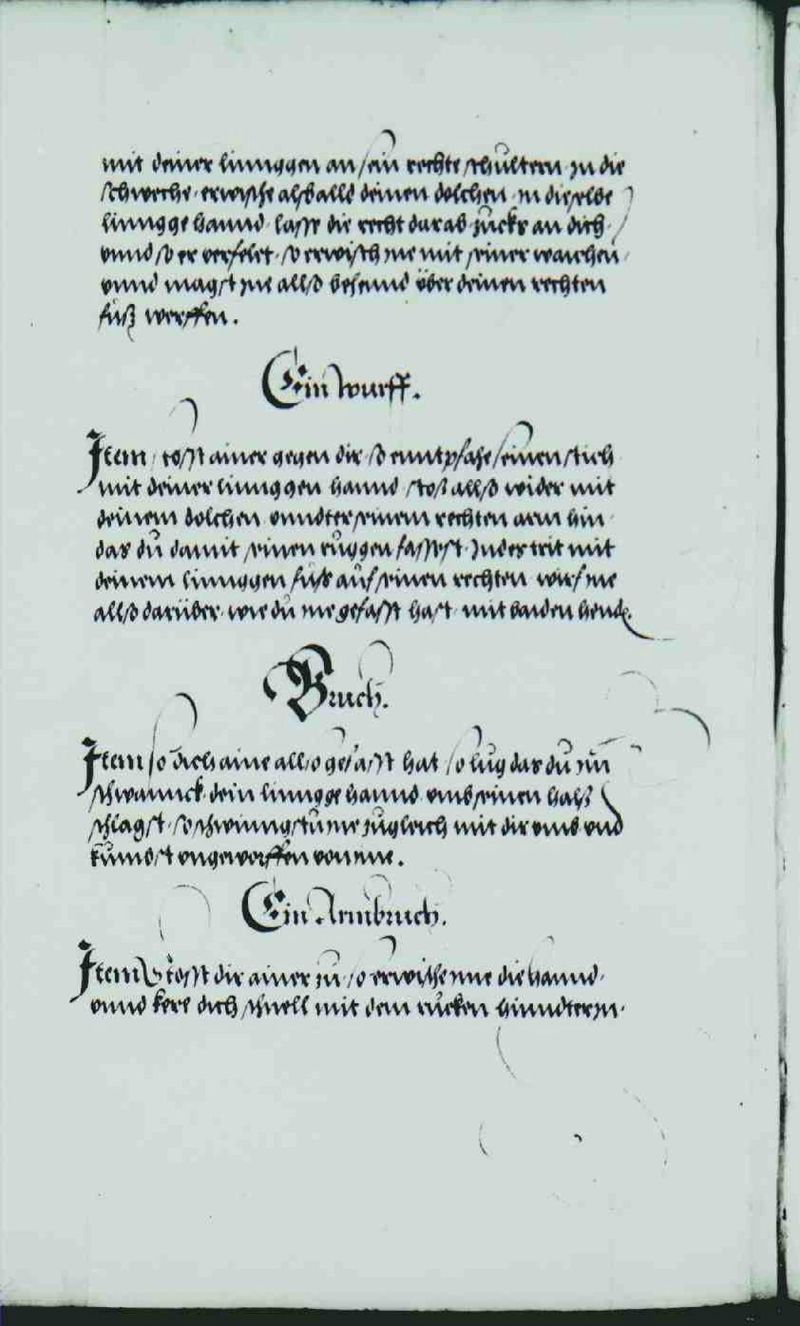 mit deiner linnggen an sein rechte schultern in die
schweche erwische allsballd deinen dolchen in dieselbe
linngge hannd lass die recht darab zuckr an dich
vnnd so er verfelet so erwisch ine mit seiner waichen
vnnd magst ine allso behennd über deinen rechten
fůß werffen.
Ein wurff.
Item stosst ainer gegen dir so enntpfahe seinen stich
mit deiner linnggen hannd stos allso wider mit
deinem dolchen vnndter seinem rechten arm hin
das dů damit seinen ruggen fassest Inndes trit mit
deinem linnggen fůß auf seinen rechten wirf ine
allso darüber wie dů ine gefasst hast mit baiden hend.
Bruch.
Item so dich aine allso gefasst hat so lůg das dů im
schwannck dein linngge hannd vmb seinen halß
schlagst so schwinngstů ine zugleich mit dir vmb vnd
kůmbst vngeworffen von ime.
Ein Armbruch.
Item Stosst dir ainer zů so erwische ime die hannd
vnnd kere dich schnell mit dem růcken hinndterzu